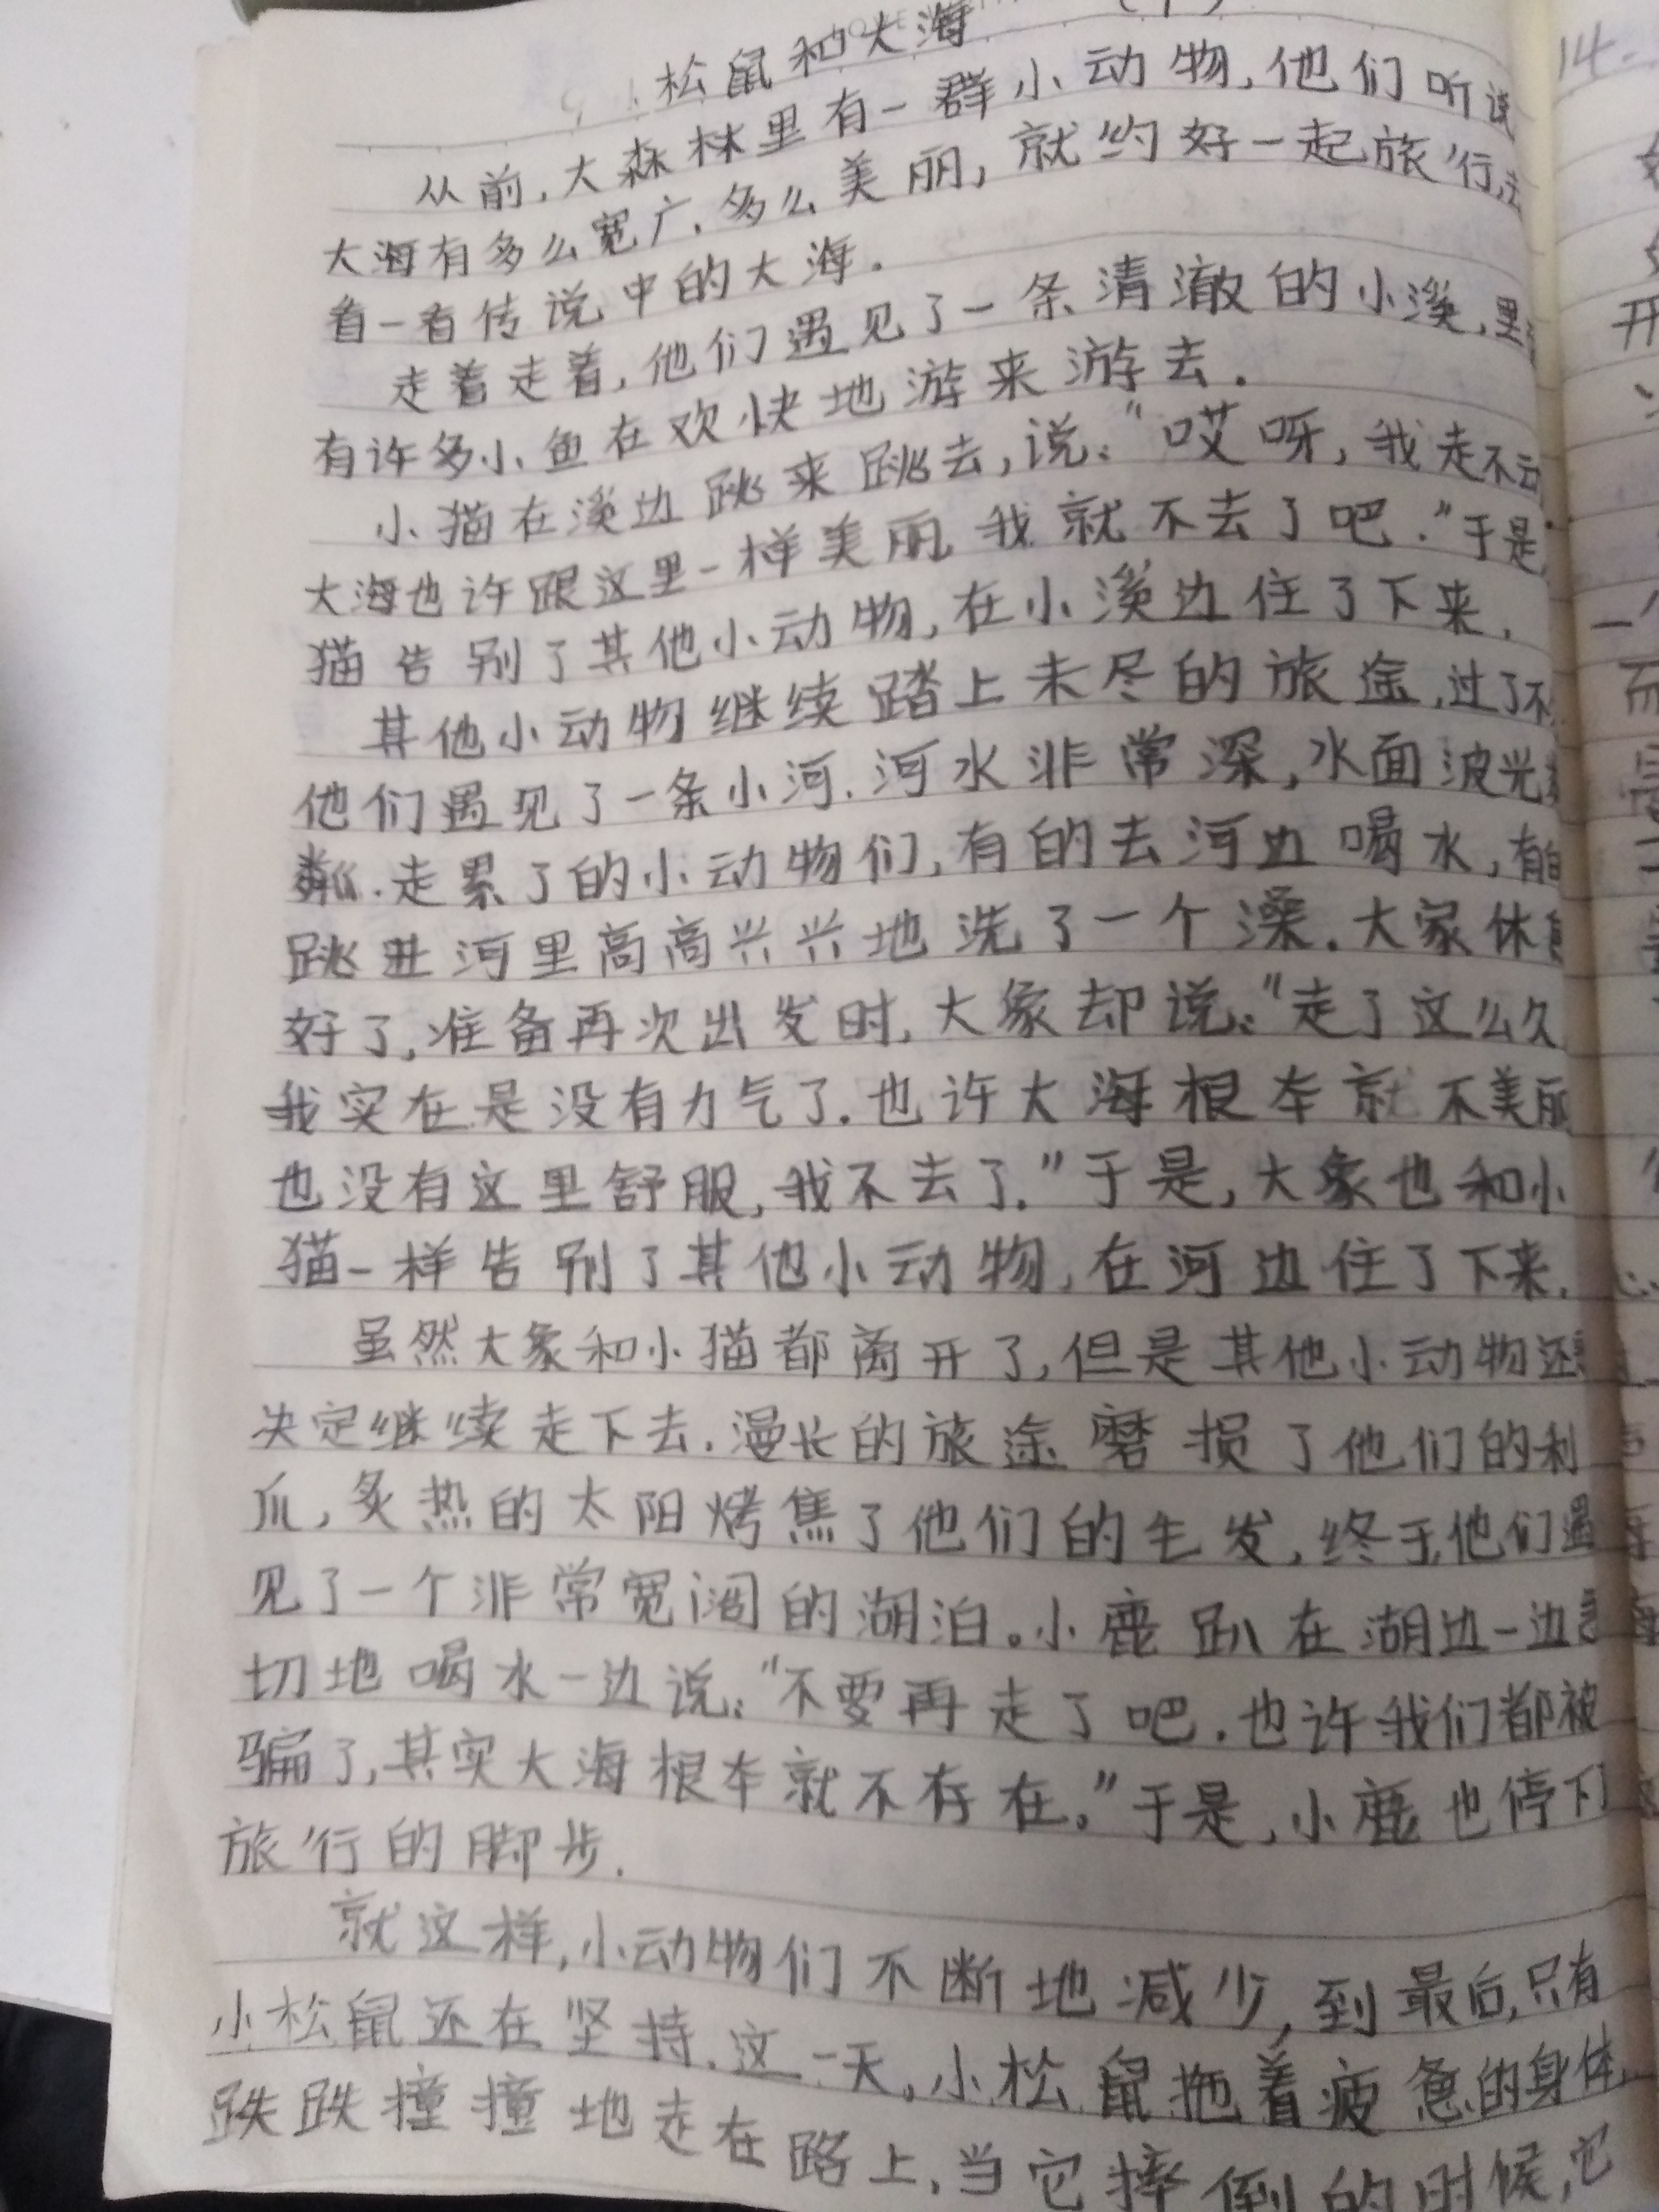 松鼠和大海
从前,大森林里有一群小动物,他们听说
大海有多么宽广,多么美丽,就约好一起旅行,去
看一看传说中的大海.
走着走着,他们遇见了一条清澈的小溪,里
有许多小鱼在欢快地游来游去.
小猫在溪边跳来跳去,说:“哎呀,我走不动
大海也许跟这里一样美丽,我就不去了吧.”于是
猫告别了其他小动物,在小溪边住了下来.
其他小动物继续踏上未尽的旅途,过了不
他们遇见了一条小河.河水非常深,水面波光
粼.走累了的小动物们,有的去河边喝水,有的
跳进河里高高兴兴地洗了一个澡.大家休息
好了,准备再次出发时,大象却说:“走了这么久
我实在是没有力气了.也许大海根本就不美丽
也没有这里舒服,我不去了.”于是,大象也和小
猫一样告别了其他小动物,在河边住了下来.
虽然大象和小猫都离开了,但是其他小动物还
决定继续走下去.漫长的旅途磨损了他们的利
爪,炙热的太阳烤焦了他们的毛发,终于,他们遇
见了一个非常宽阔的湖泊。小鹿趴在湖边一边
切地喝水一边说:“不要再走了吧.也许我们都被
骗了,其实大海根本就不存在。”于是,小鹿也停下
旅行的脚步.
就这样,小动物们不断地减少,到最后,只有
小松鼠还在坚持.这一天,小松鼠拖着疲惫的身体
跌跌撞撞地走在路上,当它摔倒的时候,它
14.
开
而